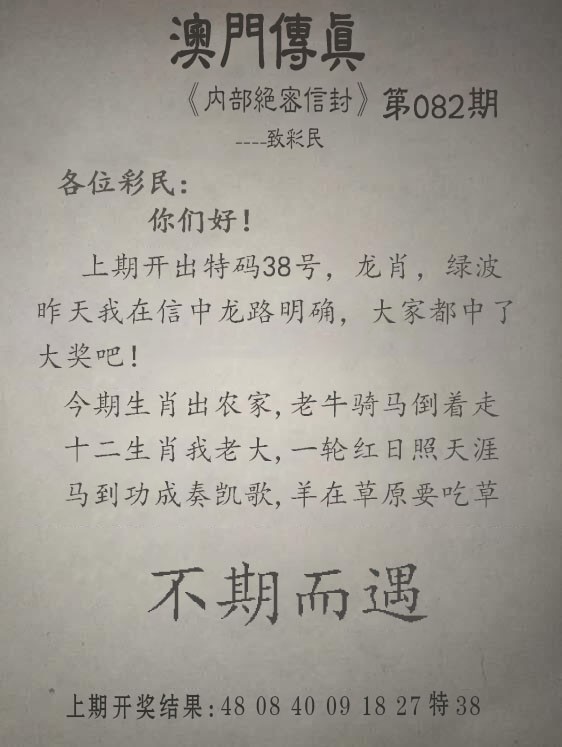 澳門傳真
《内部絕密信封》第082期
----致彩民
各位彩民：
你们好！
上期开出特码38号，龙肖，绿波
昨天我在信中龙路明确，大家都中了
大奖吧！
今期生肖出农家,老牛骑马倒着走
十二生肖我老大,一轮红日照天涯
马到功成奏凯歌,羊在草原要吃草
不期而遇
上期开奖结果:48 08 40 09 18 27特38